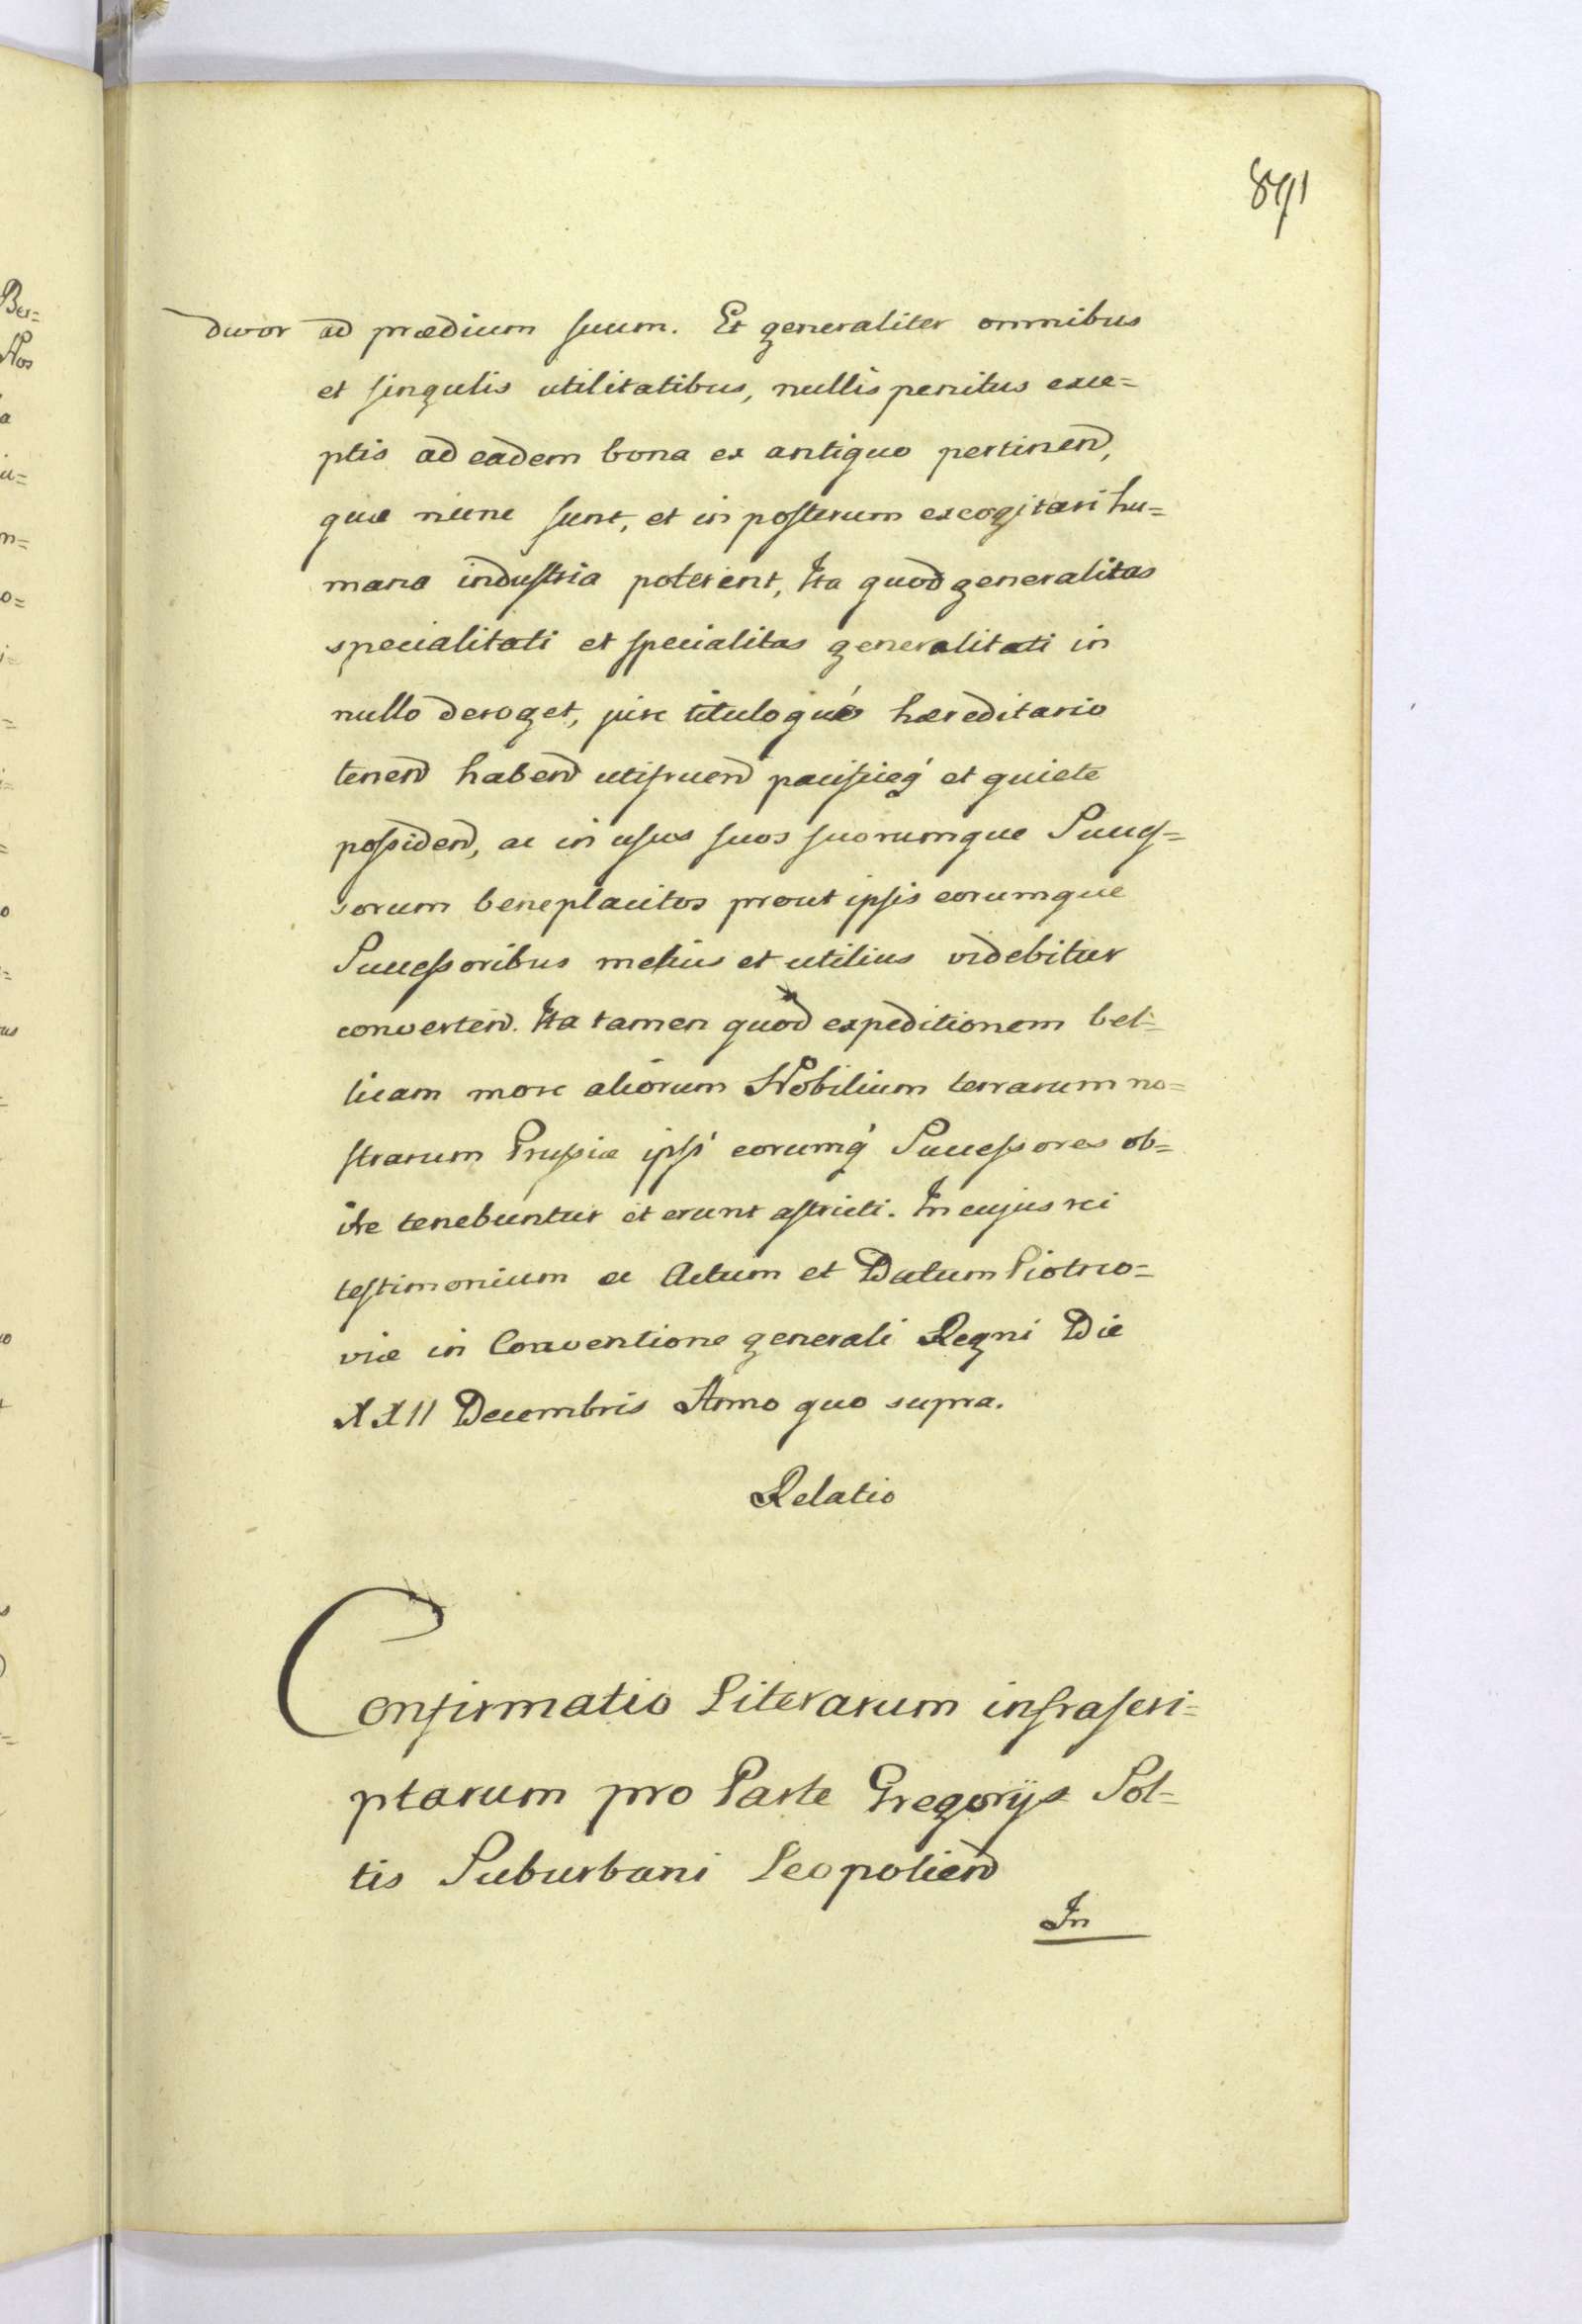 891
dwor ad prædium suum. Et generaliter omnibus
et singulis utilitatibus, nullis penitus exce=
ptis ad eadem bona ex antiquo pertinend,
quæ nunc sunt, et in posterum excogitari hu=
mana industria poterint, Ita quod generalitas
specialitati et specialitas generalitati in
nullo deroget, jure tituloqué hæreditario
tenend habend utifruend pacificeq́ et quiete
possidend, ac in usus suos suorumque Succes=
sorum beneplacitos prout ipsis eorumque
Successoribus melius et utilius videbitur
convertend. Ita tamen quod expeditionem bel=
licam more aliorum Nobilium terrarum no=
strarum Prussiæ ipsi eorumq́ Successores ob=
ire tenebuntur et erunt astricti. In cujus rei
testimonium ac Actum et Datum Piotrco=
viæ in Conventione generali Regni Die
XXII Decembris Anno quo supra.
Relatio
Confirmatio Literarum infrascri=
ptarum pro Parte Gregorijs Sol=
tis Suburbani Leopoliend
In
Ber=
Nos